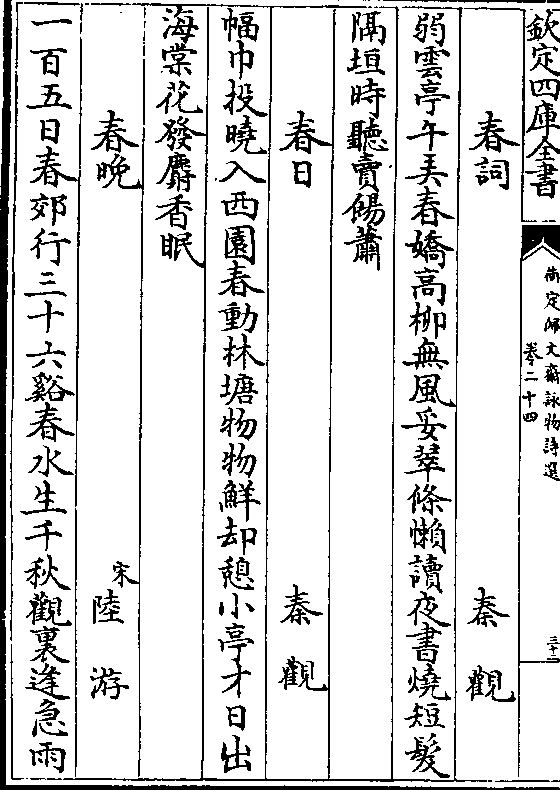 欽定四庫全書
御定佩文齋詠物詩選
卷二十四
三十二
春詞 秦觀
弱雲亭午弄春嬌高柳無風妥翠條懶讀夜書燒短髮
隔垣時聽賣餳蕭
春日 秦觀
幅巾投曉入西園春動林塘物物鮮却憩小亭才日出
海棠花發麝香眠
春晚 宋陸游
一百五日春郊行三十六谿春水生千秋觀裏逢急雨